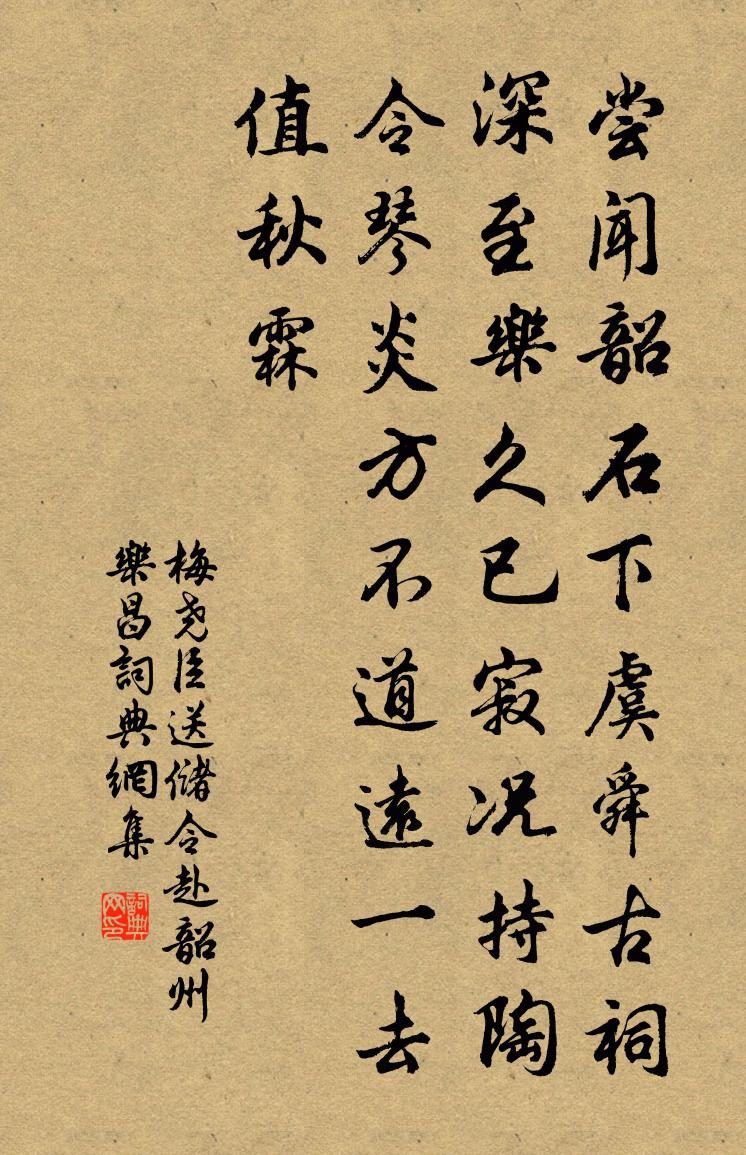 尝闻韶石下虞舜古祠
深至樂久已寂况持陶
令琴炎方不道遠一去
值秋霖
梅尧臣送儲令赴韶州
樂昌詞典網集
詞典
网印